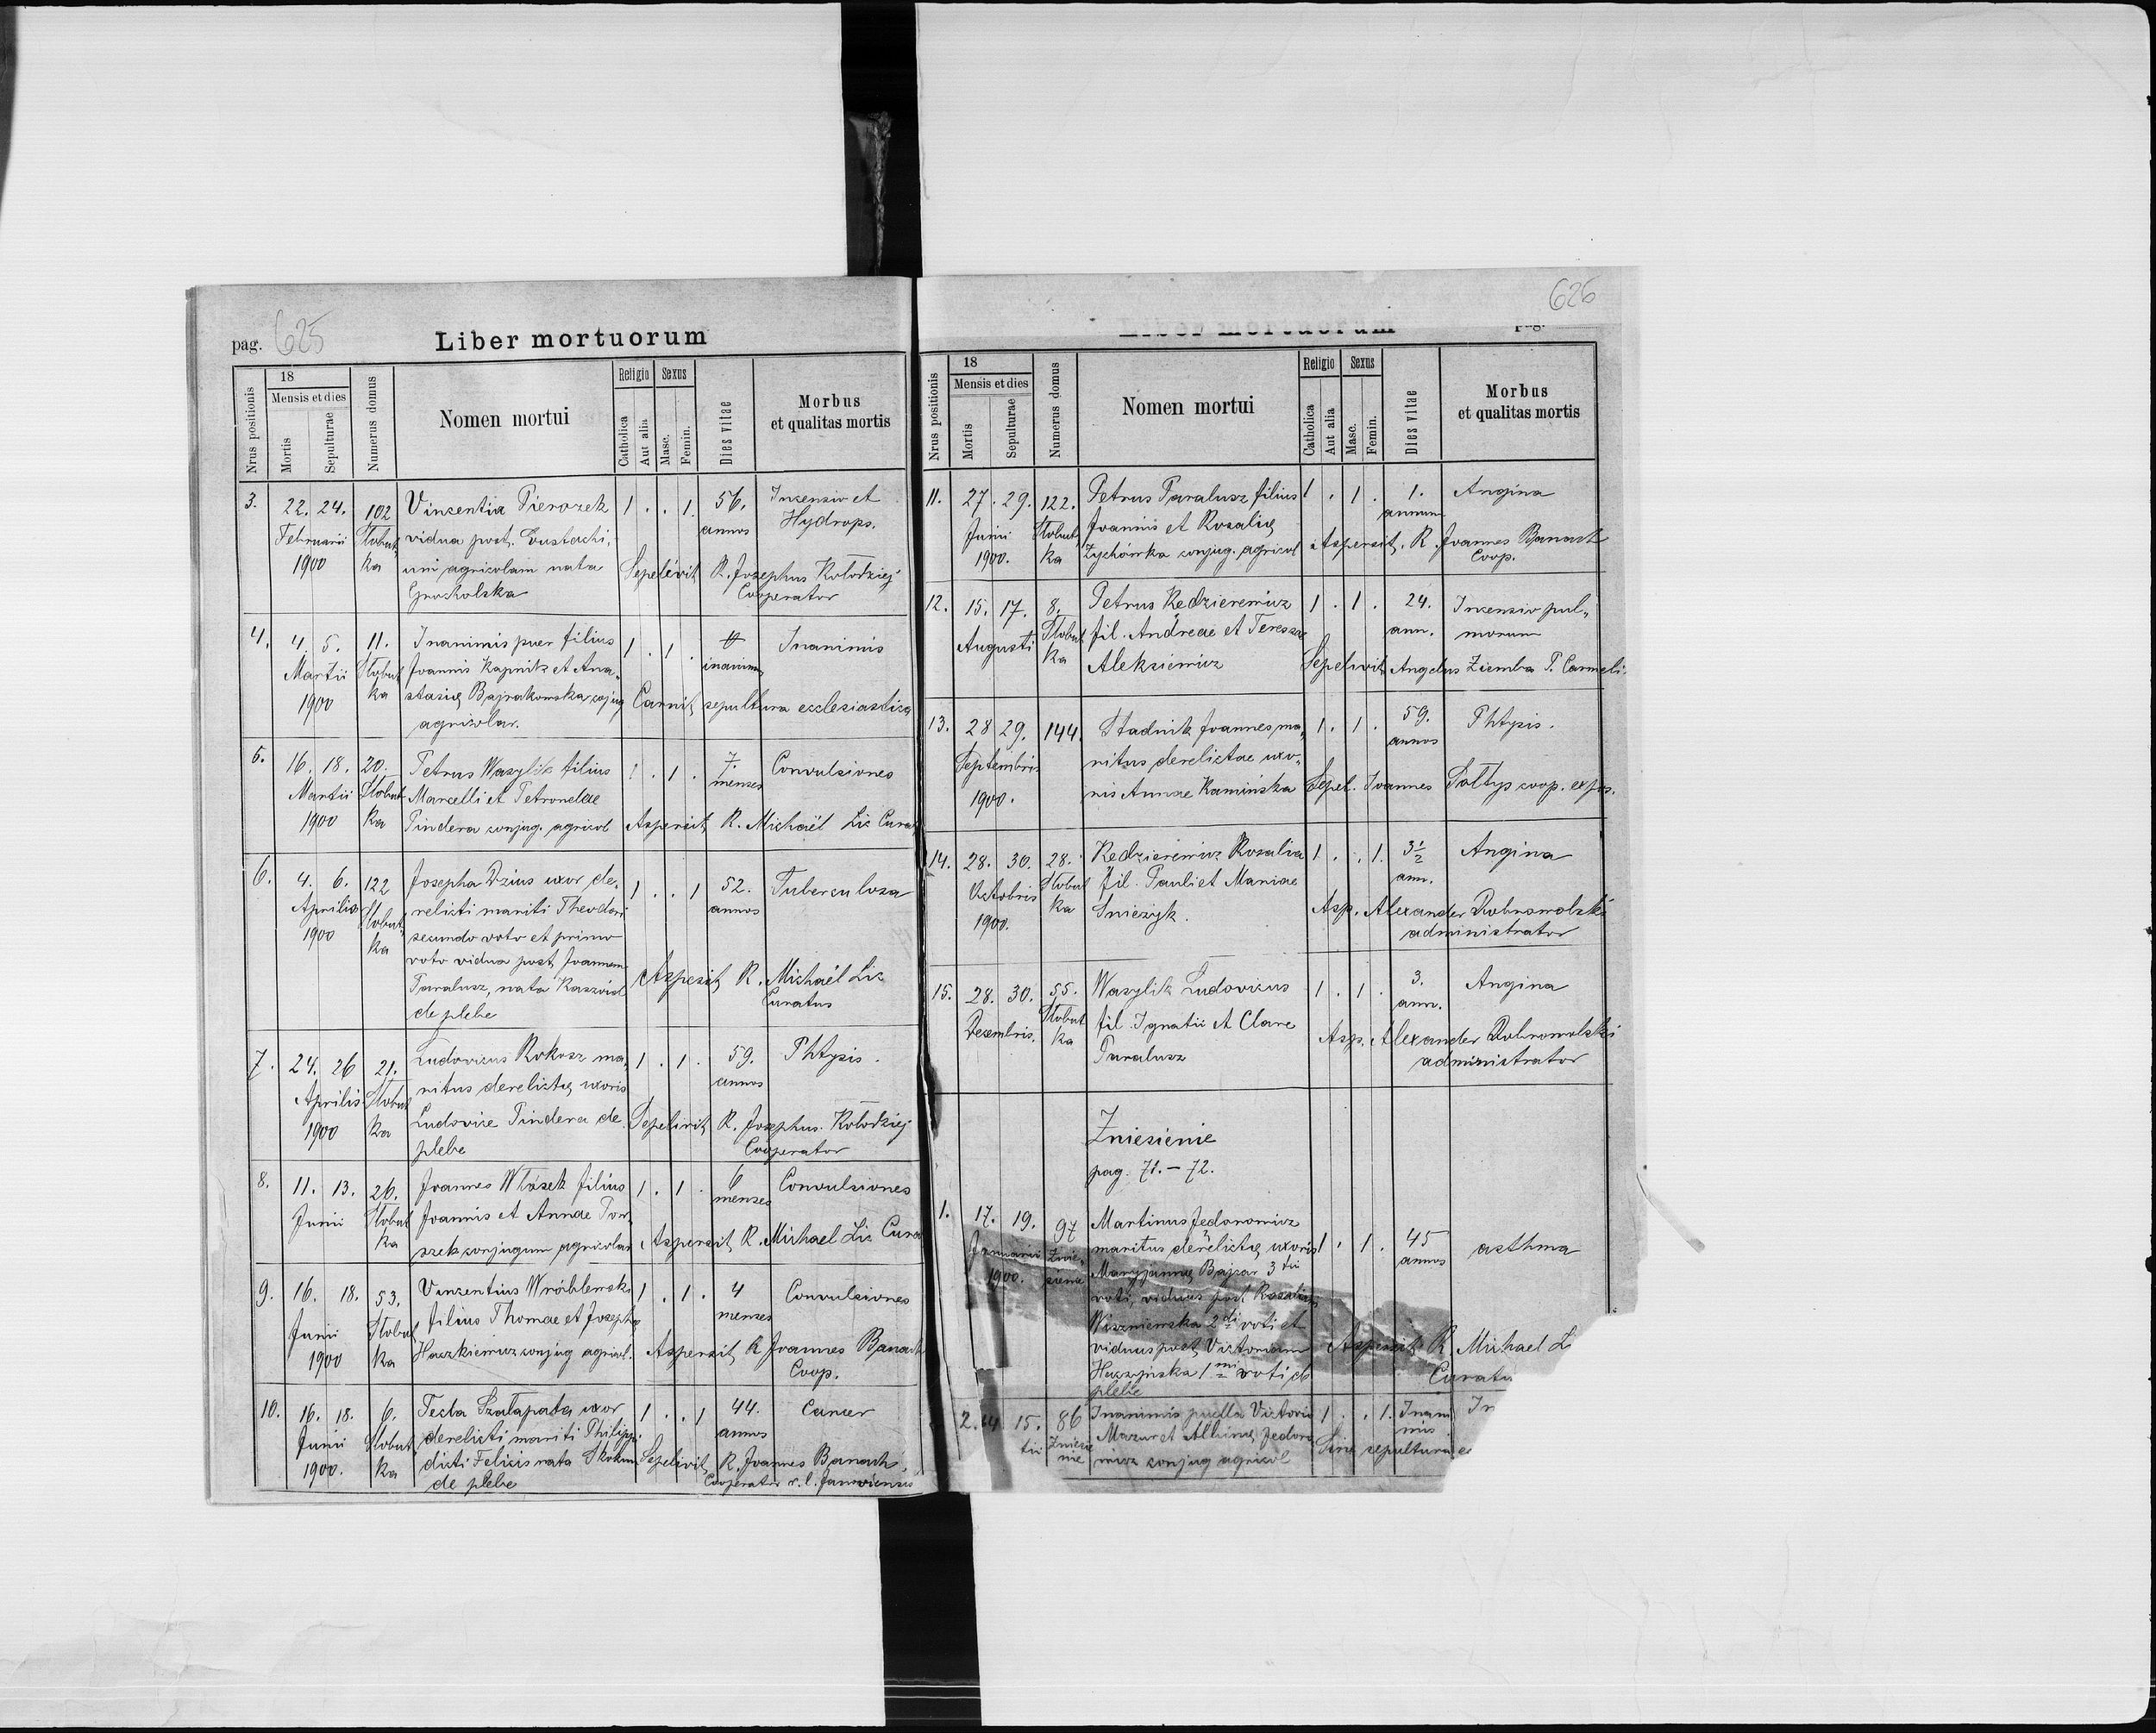 pag. 625
Liber mortuorum
Nrus positionis
18
Mensis et dies
Mortis
Sepulturae
Numerus domus
Nomen mortui
Religio
Catholica
Aut alia
Sexus
Masc.
Femin.
Dies vitae
Morbus
et qualitas mortis
3. 22. 24. 102 Vincentia Pierozek 1 . . 1. 56. Incensio et
Februarii Słobut vidua post. Eustachi, annos Hydrops.
1900 ka um agricolam nata Sepelivit R. Josephus Kołodziej
Grockolska Cooperator
4. 4. 5. 11. Inanimis puer filius 1 . 1 . Inanimis
Martii Słobut Joannis Kapnik et Ana, inanimis
1900 ka stasiæ Bajrakowska conjug Carnit sepultura ecclesiastica
agricolar.
5. 16. 18. 20. Petrus Wasylik filius 1 . 1 . 7. Convulsiones
Martii Słobut Marcelli et Petronelae menses
1900 ka Pindera conjug. agricol Aspersit R. Michaël Lic Curat
6. 4. 6. 122 Josepha Dzius uxor de, 1 . . 1 52. Tuberculosa
Aprilis Słobut relicti mariti Theodori annos
1900 ka secundo voto et primo
voto vidua post Joannem
Paralusz, nata Aspersit R. Michaël Lic
de plebe Curatus
7. 24. 26 21. Ludovicus Rokosz ma, 1 . 1 . 59. Phtysis.
Aprilis Słobut ritus derelictæ uxoris annos
1900 ka Ludovice Pindera de Sepelivit R. Josephus Kołodziej
plebe Cooperator
8. 11. 13. 26. Joannes Włosek filius 1 . 1 . 6 Convulsiones
Junii Słobut Joannis et Annae Tom, menses
ka szek conjugum agricolar Aspersit R. Michael Lic Cura
9. 16. 18. 53. Vincentius Wróblewski 1 . 1 . 4 Convulsiones
Junii Słobut filius Thomae et Josephæ menses
1900 ka Haszkiewicz conjug agricol. Aspersit R Joannes Banach
Coop.
10. 16. 18. 6. Tecla Szałapata uxor 1 . . 1 44. Cancer
Junii Słobut derelicti mariti Philippi annos
1900. ka dicti Felicis nata Skokun Sepelivit R. Joannes Banach,
de plebe Cooperator r. l. Janoviensis
626
Liber mortuorum
pag.
Nrus positionis
18
Mensis et dies
Mortis
Sepulturae
Numerus domus
Nomen mortui
Religio
Catholica
Aut alia
Sexus
Masc.
Femin.
Dies vitae
Morbus
et qualitas mortis
11. 27. 29. 122. Petrus Paralusz filius 1 . 1 . 1. Angina
Junii Słobut Joannis et Rosaliæ annum
1900. ka Zychówka conjug. agricol Aspersit. R. Joannes Banach
Coop.
12. 15. 17. 8. Petrus Kedzierewicz 1 . 1 . 24. Incensio pul,
Augusti Słobut fil. Andreae et Teresae ann. monum
ka Aleksiewicz Sepelivit Angelus Ziemba P. Carmeli.
13. 28 29. 144. Stadnik Joannes ma, 1 . 1 . 59. Phtysis.
Septembris ritus derelictae uxo, annos
1900. ris Annae Kamińska Sepel. Joannes Sałtyp coop. expos.
14. 28. 30. 28. Kedzierewicz Rosalia 1 . . 1. 3 1/2 Angina
Octobris Słobut fil. Pauli et Mariae ann.
1900. ka Snieżyk. Asp. Alexander Dobrowolski
administrator
15. 28. 30. 55. Wasylik Ludovicus 1 . 1 . 3. Angina
Decembris. Słobut fil. Ignatii et Clare ann.
ka Paralusz Asp. Alexander Dobrowolski
administrator
Zniesienie
pag. 71. – 72.
1. 17. 19. 97 Martinus Fedorowicz
Januarii Znie, maritus derelictæ uxoris 1 . 1 . 45 asthma
1900. sienie Maryjannæ Bajzar 3 tii annos
voti, viduus post Rosaliam
Wiszniewska 2 di voti et
viduus post Victoriam Aspersit R. Michael Li
1 mi voti de Curatu
plebe
2. 14 15. 86 Inanimis puella Victoris 1 . . 1. Inani In
tii Zniesie Mazur et Albinæ Fedoro, mis
nie wicz conjug agricol Sine sepultura ec